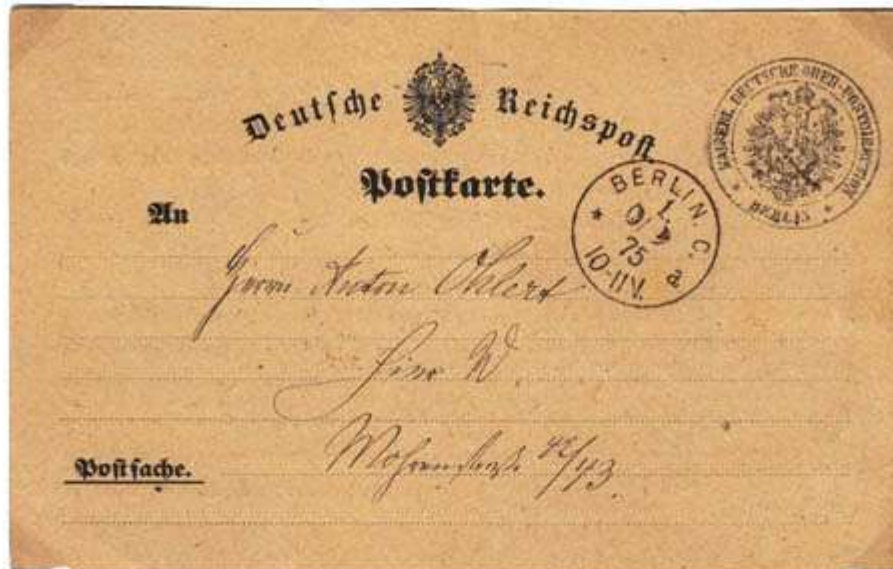 Deutsche Reichspost
KAISERL. DEUTSCHE OBER-POSTDIRECTION
BERLIN
Postkarte.
BERLIN. C.
1.
75
10-11V.
a
An
Herrn Anton Ohlert
Hier W.
Mohrenstraße 42/43.
Postsache.